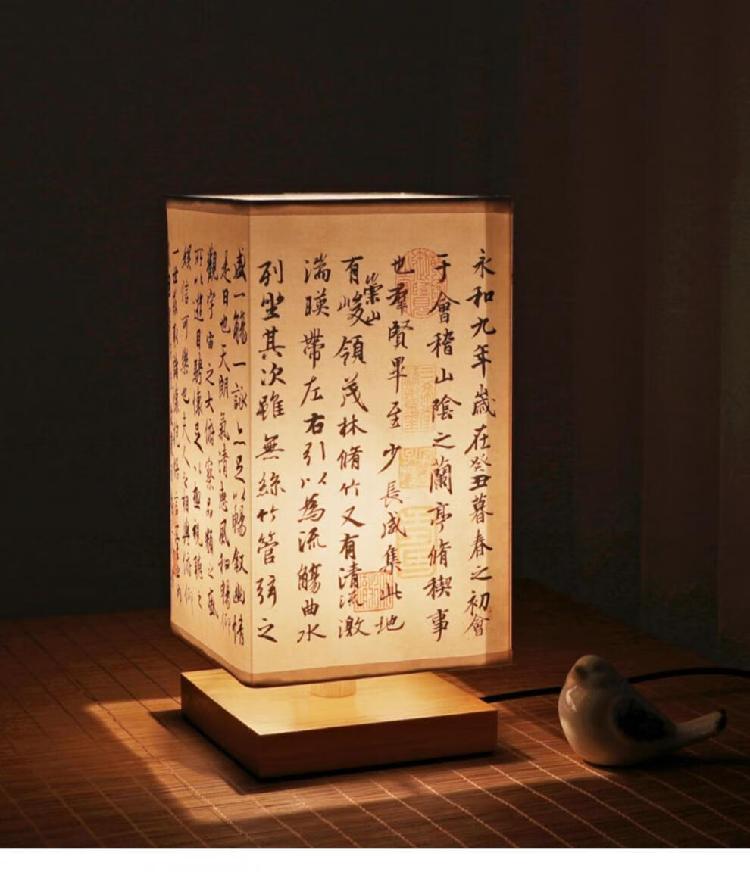 永和九年歲在癸丑暮春之初會
于會稽山陰之蘭亭脩稧事
也羣賢畢至少長咸集此地
有崇山峻領茂林脩竹又有清流激
湍暎帶左右引以為流觴曲水
列坐其次雖無絲竹管弦之
盛一觴一詠亦足以暢敘幽情
是日也天朗氣清惠風和暢仰
觀宇宙之大俯察品類之盛
所以遊目騁懷足以極視聽之
娛信可樂也夫人之相與俯仰
一世或取諸懷抱